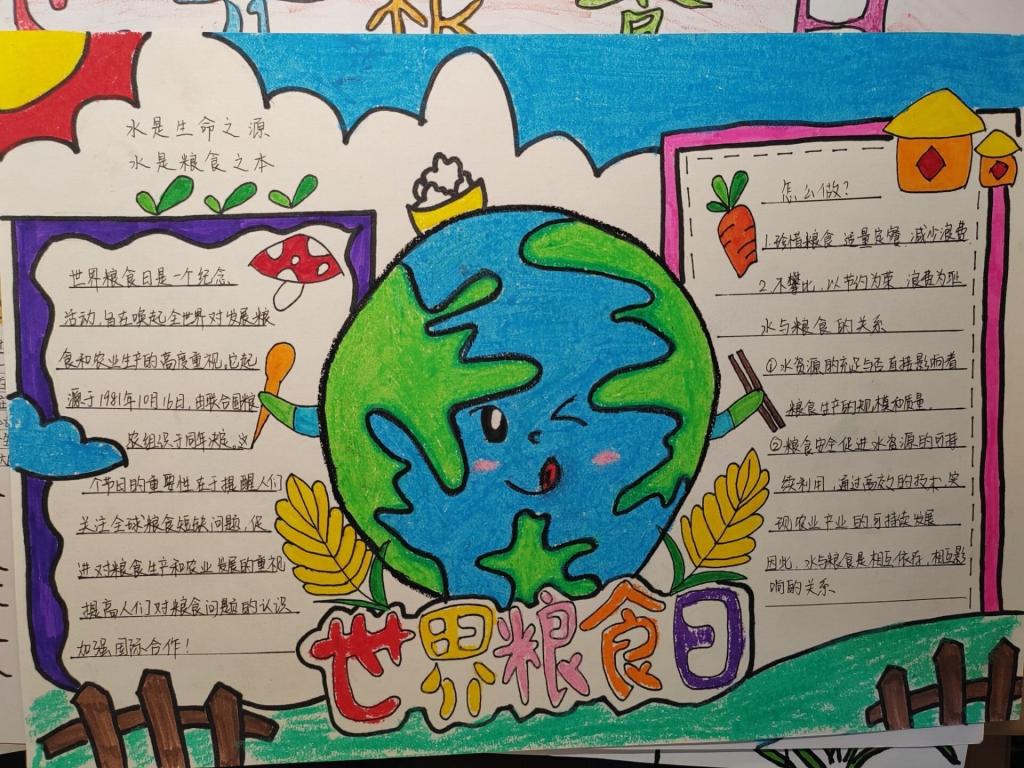 水是生命之源
水是粮食之本
世界粮食日是一个纪念
活动,旨在唤起全世界对发展粮
食和农业生产的高度重视,它起
源于1981年10月16日,由联合国粮
农组织于同年决定。这
个节日的重要性在于提醒人们
关注全球粮食短缺问题,促
进对粮食生产和农业发展的重视
提高人们对粮食问题的认识
加强国际合作!
怎么做?
1.珍惜粮食 适量定餐 减少浪费
2.不攀比,以节约为荣 浪费为耻
水与粮食的关系
①水资源的充足与否直接影响着
粮食生产的规模和质量。
②粮食安全促进水资源的可持
续利用,通过高效的技术,实
现农业产业的可持续发展
因此,水与粮食是相互依存,相互影
响的关系
世界粮食日